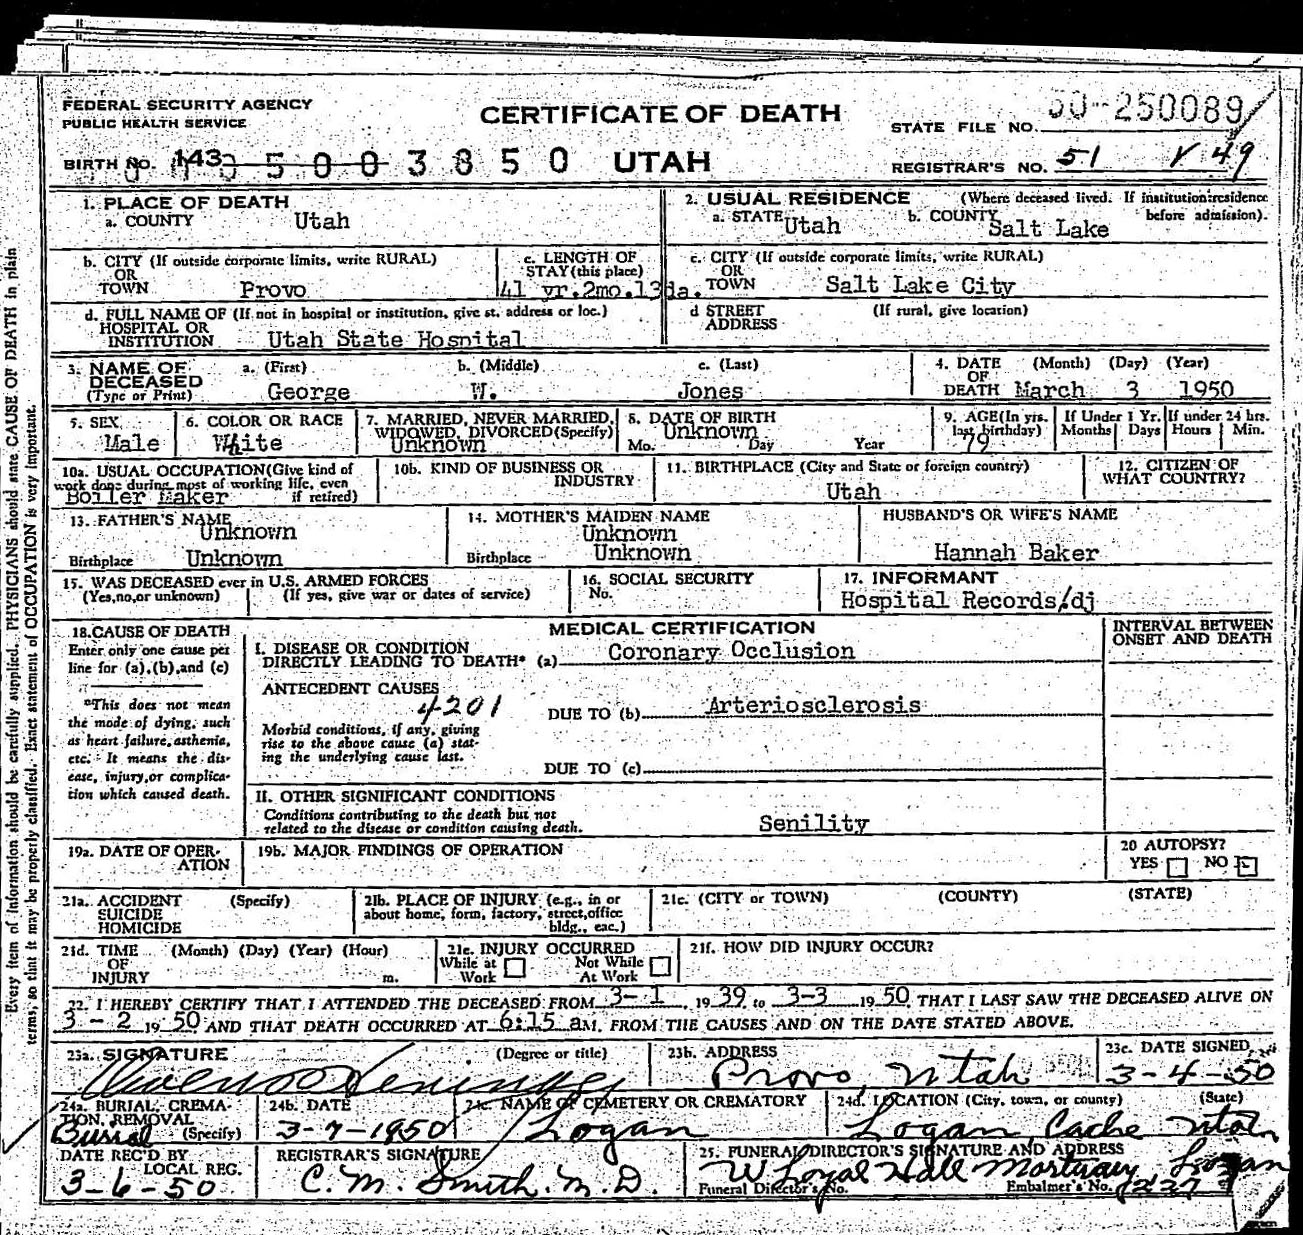 FEDERAL SECURITY AGENCY
PUBLIC HEALTH SERVICE
CERTIFICATE OF DEATH
STATE FILE NO. 50-250089
BIRTH NO. 143 5 0 0 3 8 5 0 UTAH
REGISTRAR'S NO. 51 V 49
1. PLACE OF DEATH
a. COUNTY Utah
2. USUAL RESIDENCE (Where deceased lived. If institution:residence before admission).
a. STATE Utah b. COUNTY Salt Lake
b. CITY (If outside corporate limits, write RURAL)
OR
TOWN Provo
c. LENGTH OF
STAY (this place)
41 yr.2mo.13da.
c. CITY (If outside corporate limits, write RURAL)
OR
TOWN Salt Lake City
d. FULL NAME OF (If not in hospital or institution, give st. address or loc.)
HOSPITAL OR
INSTITUTION Utah State Hospital
d STREET (If rural, give location)
ADDRESS
3. NAME OF DECEASED
(Type or Print)
a. (First) b. (Middle) c. (Last)
George W. Jones
4. DATE (Month) (Day) (Year)
OF
DEATH March 3 1950
5. SEX
Male
6. COLOR OR RACE
White
7. MARRIED, NEVER MARRIED,
WIDOWED, DIVORCED (Specify)
Unknown
8. DATE OF BIRTH
Unknown
Mo. Day Year
9. AGE (In yrs.
last birthday)
79
If Under 1 Yr.
Months Days
If under 24 hrs.
Hours Min.
10a. USUAL OCCUPATION (Give kind of
work done during most of working life, even
if retired)
Boiler Maker
10b. KIND OF BUSINESS OR
INDUSTRY
11. BIRTHPLACE (City and State or foreign country)
Utah
12. CITIZEN OF
WHAT COUNTRY?
13. FATHER'S NAME
Unknown
Birthplace Unknown
14. MOTHER'S MAIDEN NAME
Unknown
Birthplace Unknown
HUSBAND'S OR WIFE'S NAME
Hannah Baker
15. WAS DECEASED ever in U.S. ARMED FORCES
(Yes,no,or unknown) (If yes, give war or dates of service)
16. SOCIAL SECURITY
No.
17. INFORMANT
Hospital Records/dj
18. CAUSE OF DEATH
Enter only one cause per
line for (a), (b), and (c)
*This does not mean
the mode of dying, such
as heart failure, asthenia,
etc. It means the dis-
ease, injury, or complica-
tion which caused death.
MEDICAL CERTIFICATION
INTERVAL BETWEEN
ONSET AND DEATH
I. DISEASE OR CONDITION
DIRECTLY LEADING TO DEATH* (a) Coronary Occlusion
ANTECEDENT CAUSES
4201
DUE TO (b) Arteriosclerosis
Morbid conditions, if any, giving
rise to the above cause (a) stat-
ing the underlying cause last.
DUE TO (c)
II. OTHER SIGNIFICANT CONDITIONS
Conditions contributing to the death but not
related to the disease or condition causing death.
Senility
19a. DATE OF OPER-
ATION
19b. MAJOR FINDINGS OF OPERATION
20 AUTOPSY?
YES NO
21a. ACCIDENT (Specify)
SUICIDE
HOMICIDE
21b. PLACE OF INJURY (e.g., in or
about home, form, factory, street, office
bldg., eac.)
21c. (CITY or TOWN) (COUNTY) (STATE)
21d. TIME (Month) (Day) (Year) (Hour)
OF
INJURY m.
21e. INJURY OCCURRED
While at Work Not While At Work
21f. HOW DID INJURY OCCUR?
22. I HEREBY CERTIFY THAT I ATTENDED THE DECEASED FROM 3-1 1939 to 3-3 1950 THAT I LAST SAW THE DECEASED ALIVE ON
3-2 1950 AND THAT DEATH OCCURRED AT 6:15 a M. FROM THE CAUSES AND ON THE DATE STATED ABOVE.
23a. SIGNATURE (Degree or title)
23b. ADDRESS
Provo, Utah
23c. DATE SIGNED
3-4-50
24a. BURIAL, CREMA-
TION, REMOVAL
(Specify)
Burial
24b. DATE
3-7-1950
24c. NAME OF CEMETERY OR CREMATORY
Logan
24d. LOCATION (City, town, or county) (State)
Logan Cache Utah
DATE REC'D BY
LOCAL REG.
3-6-50
REGISTRAR'S SIGNATURE
C. M. Smith. M. D.
25. FUNERAL DIRECTOR'S SIGNATURE AND ADDRESS
W. Loyal Hall Mortuary, Logan
Funeral Director's No. Embalmer's No. 227
Every item of information should be carefully supplied. PHYSICIANS should state CAUSE OF DEATH in plain
terms, so that it may be properly classified. Exact statement of OCCUPATION is very important.